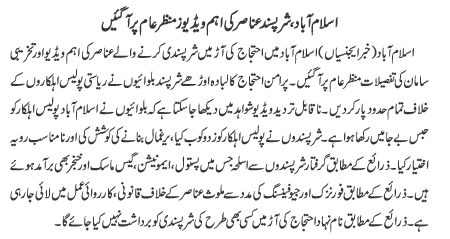 اسلام آباد، شرپسند عناصر کی اہم ویڈیوز منظر عام پر آگئیں
اسلام آباد (خبر ایجنسیاں) اسلام آباد میں احتجاج کی آڑ میں شرپسندی کرنے والے عناصر کی اہم ویڈیو اور تخریبی
سامان کی تفصیلات منظر عام پر آگئیں۔ پرامن احتجاج کا لبادہ اوڑھے شرپسند بلوائیوں نے ریاستی پولیس اہلکاروں کے
خلاف تمام حدود پار کردیں۔ ناقابل تردید ویڈیو شواہد میں دیکھا جاسکتا ہے کہ بلوائیوں نے اسلام آباد پولیس اہلکار کو
حبس بے جا میں رکھا ہوا ہے۔ شرپسندوں نے پولیس اہلکار کو زدوکوب کیا، یرغمال بنانے کی کوشش کی اور نامناسب رویہ
اختیار کیا۔ ذرائع کے مطابق گرفتار شرپسندوں سے اسلحہ جس میں پستول، ایمونیشن، گیس ماسک اور خنجر بھی برآمد ہوئے
ہیں۔ ذرائع کے مطابق فورنزک اور جیوفینسنگ کی مدد سے ملوث عناصر کے خلاف قانونی، کارروائی عمل میں لائی جارہی
ہے۔ ذرائع کے مطابق نام نہاد احتجاج کی آڑ میں کسی بھی طرح کی شرپسندی کو برداشت نہیں کیا جائے گا۔